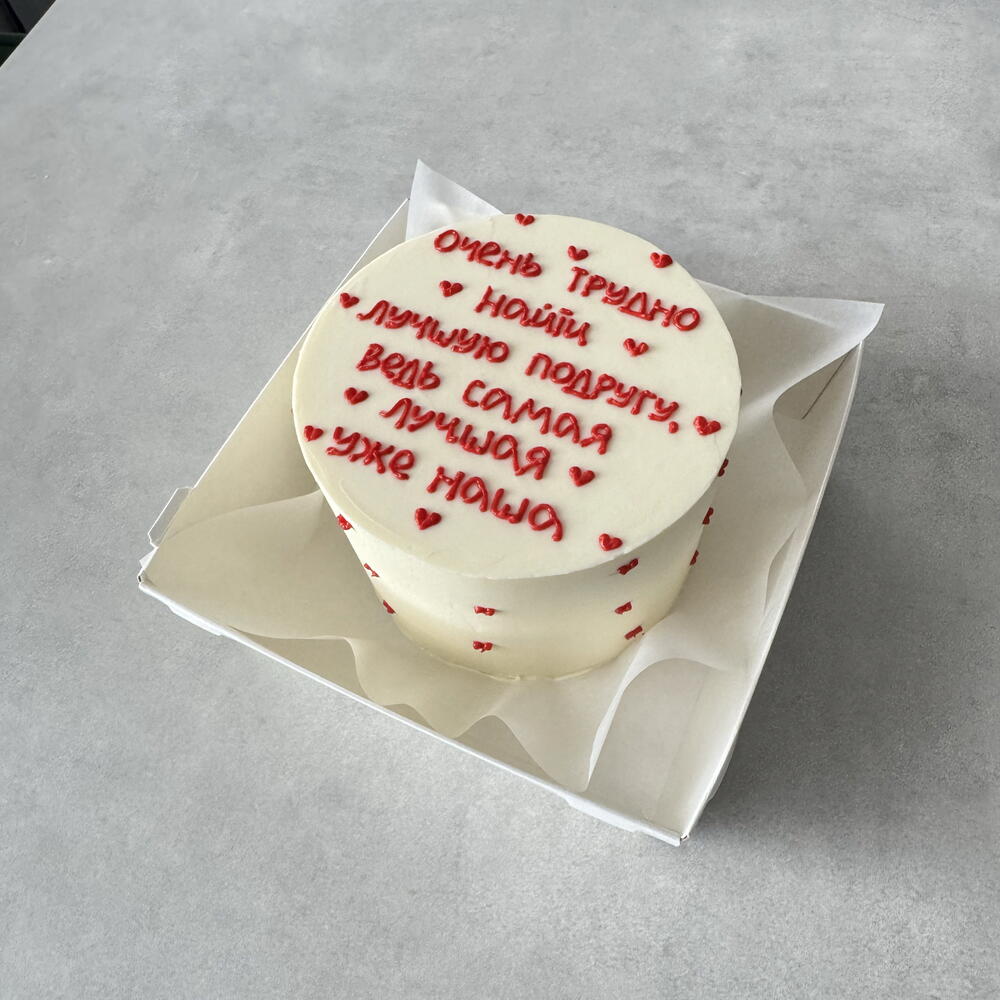 очень трудно
найти
лучшую подругу,
ведь самая
лучшая
уже наша